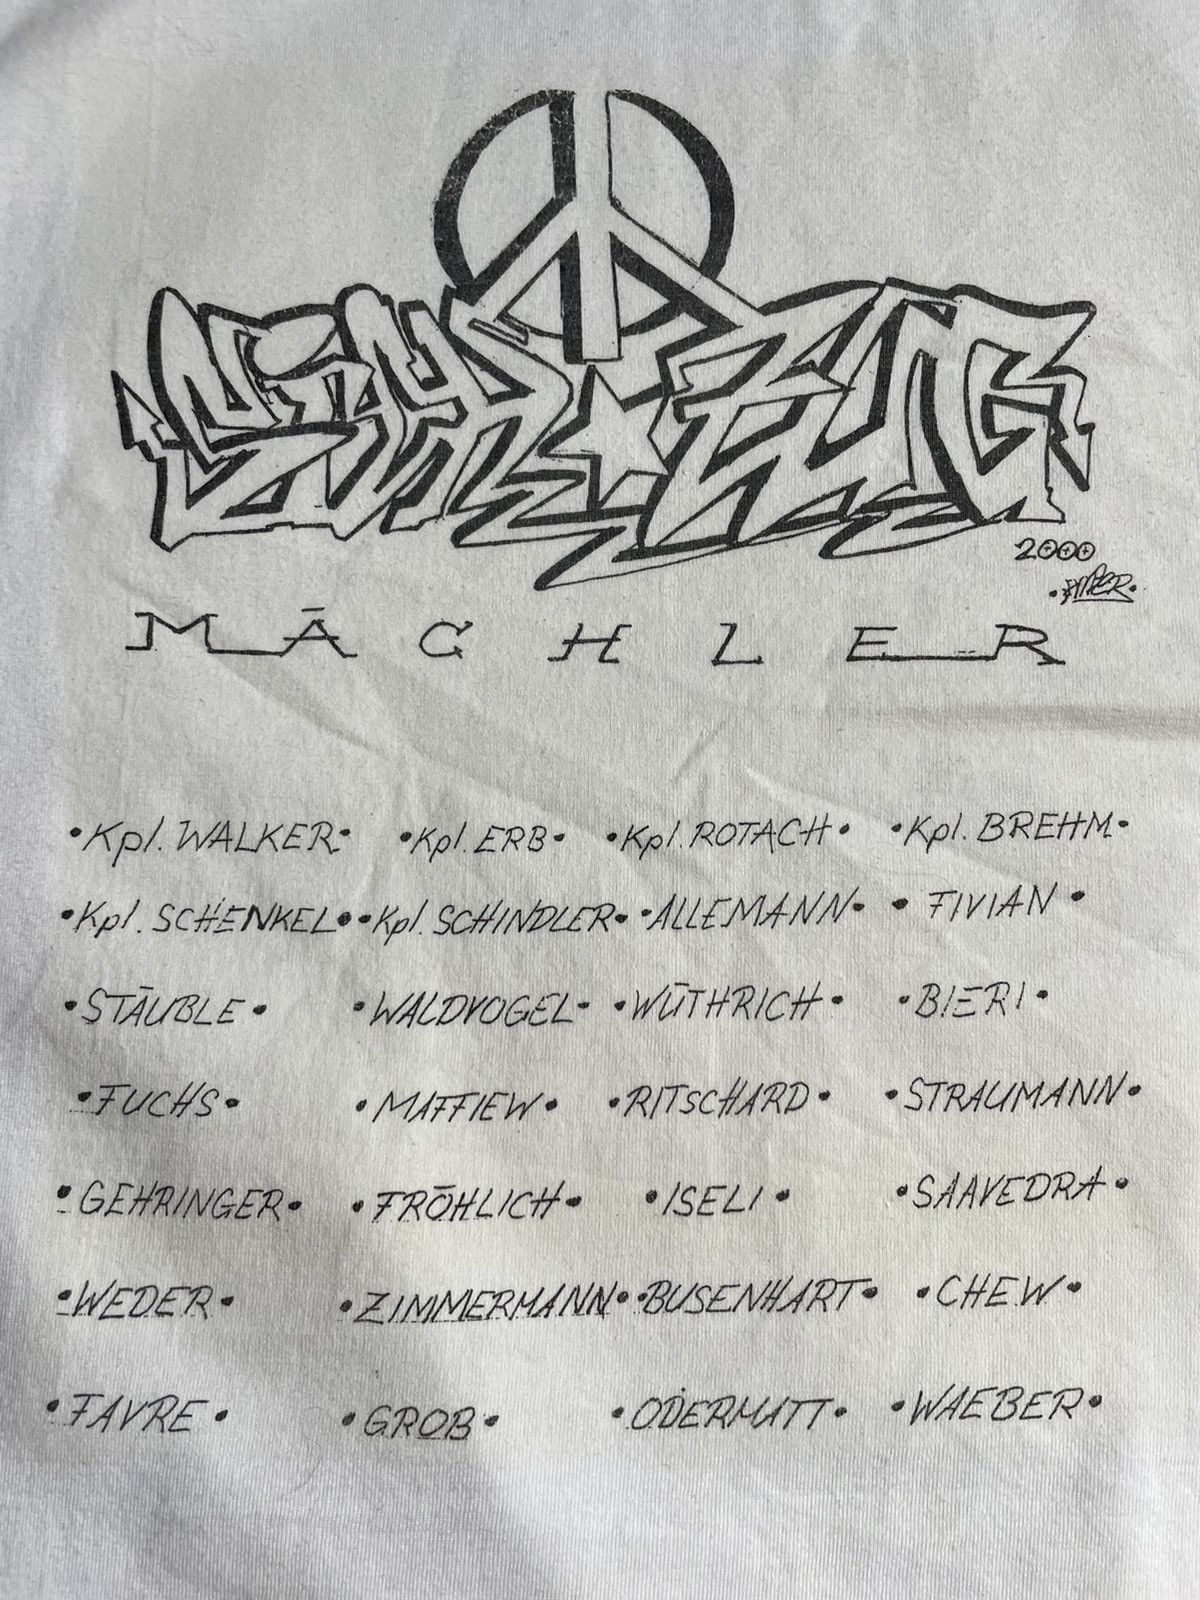 ZUG
2000
MÄCHLER
•Kpl. WALKER• •Kpl. ERB• •Kpl. ROTACH• •Kpl. BREHM•
•Kpl. SCHENKEL• •Kpl. SCHINDLER• •ALLEMANN• •FIVIAN•
•STÄUBLE• •WALDVOGEL• •WÜTHRICH• •BIERI•
•FUCHS• •MAFFIEW• •RITSCHARD• •STRAUMANN•
•GEHRINGER• •FRÖHLICH• •ISELI• •SAAVEDRA•
•WEDER• •ZIMMERMANN• •BUSENHART• •CHEW•
•FAVRE• •GROB• •ODERMATT• •WAEBER•